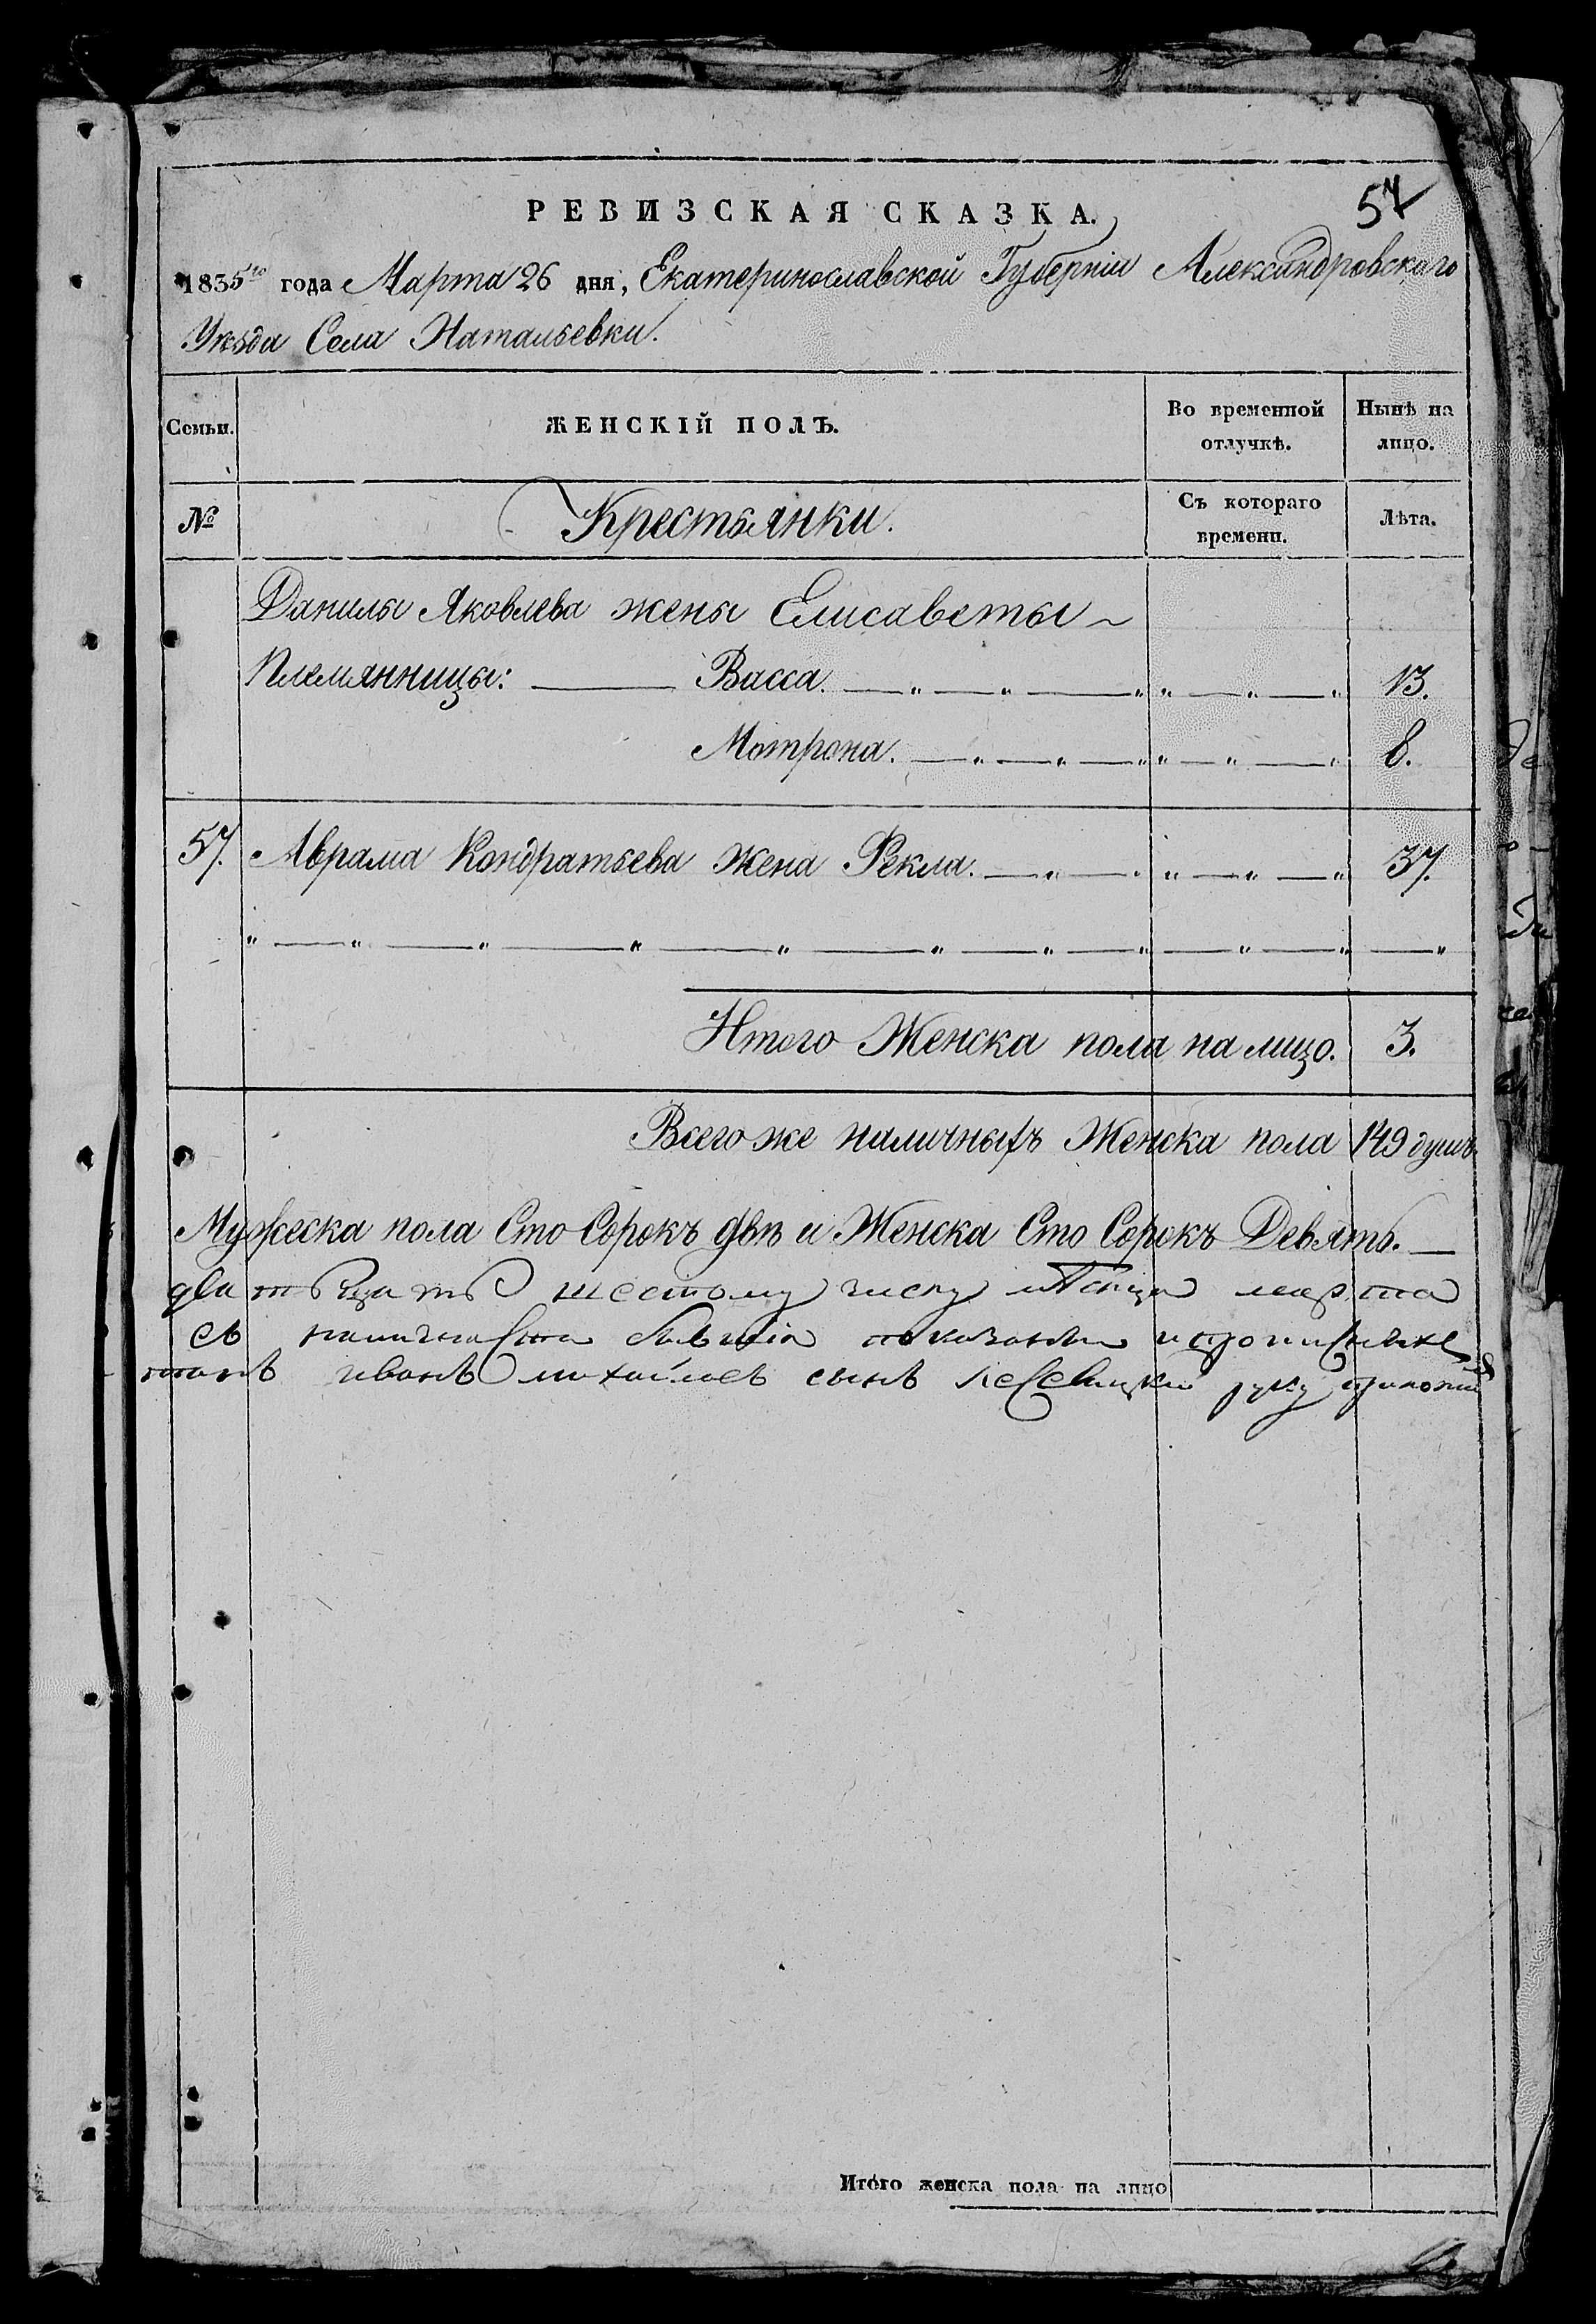 57
РЕВИЗСКАЯ СКАЗКА.
1835го года Марта 26 дня, Екатеринославской Губерніи Александровскаго
Уѣзда Села Натальевки.
Семьи. ЖЕНСКІЙ ПОЛЪ. Во временной отлучкѣ. Нынѣ на лицо.
№ Крестьянки. Съ котораго времени. Лѣта.
Данилы Яковлева жены Елисаветы
Племянницы: Васса. 13.
Мотрона. 8.
57. Аврама Кондратьева жена Фекла. 37.
Итого Женска пола на лицо. 3.
Всего же наличныхъ Женска пола 149 душъ
Мужеска пола Сто Сорокъ двѣ и Женска Сто Сорокъ Девять.
дватьцать шестому числу мѣсяца марта
въ
иванъ михайловъ сынъ руку приложил
Итого женска пола на лицо